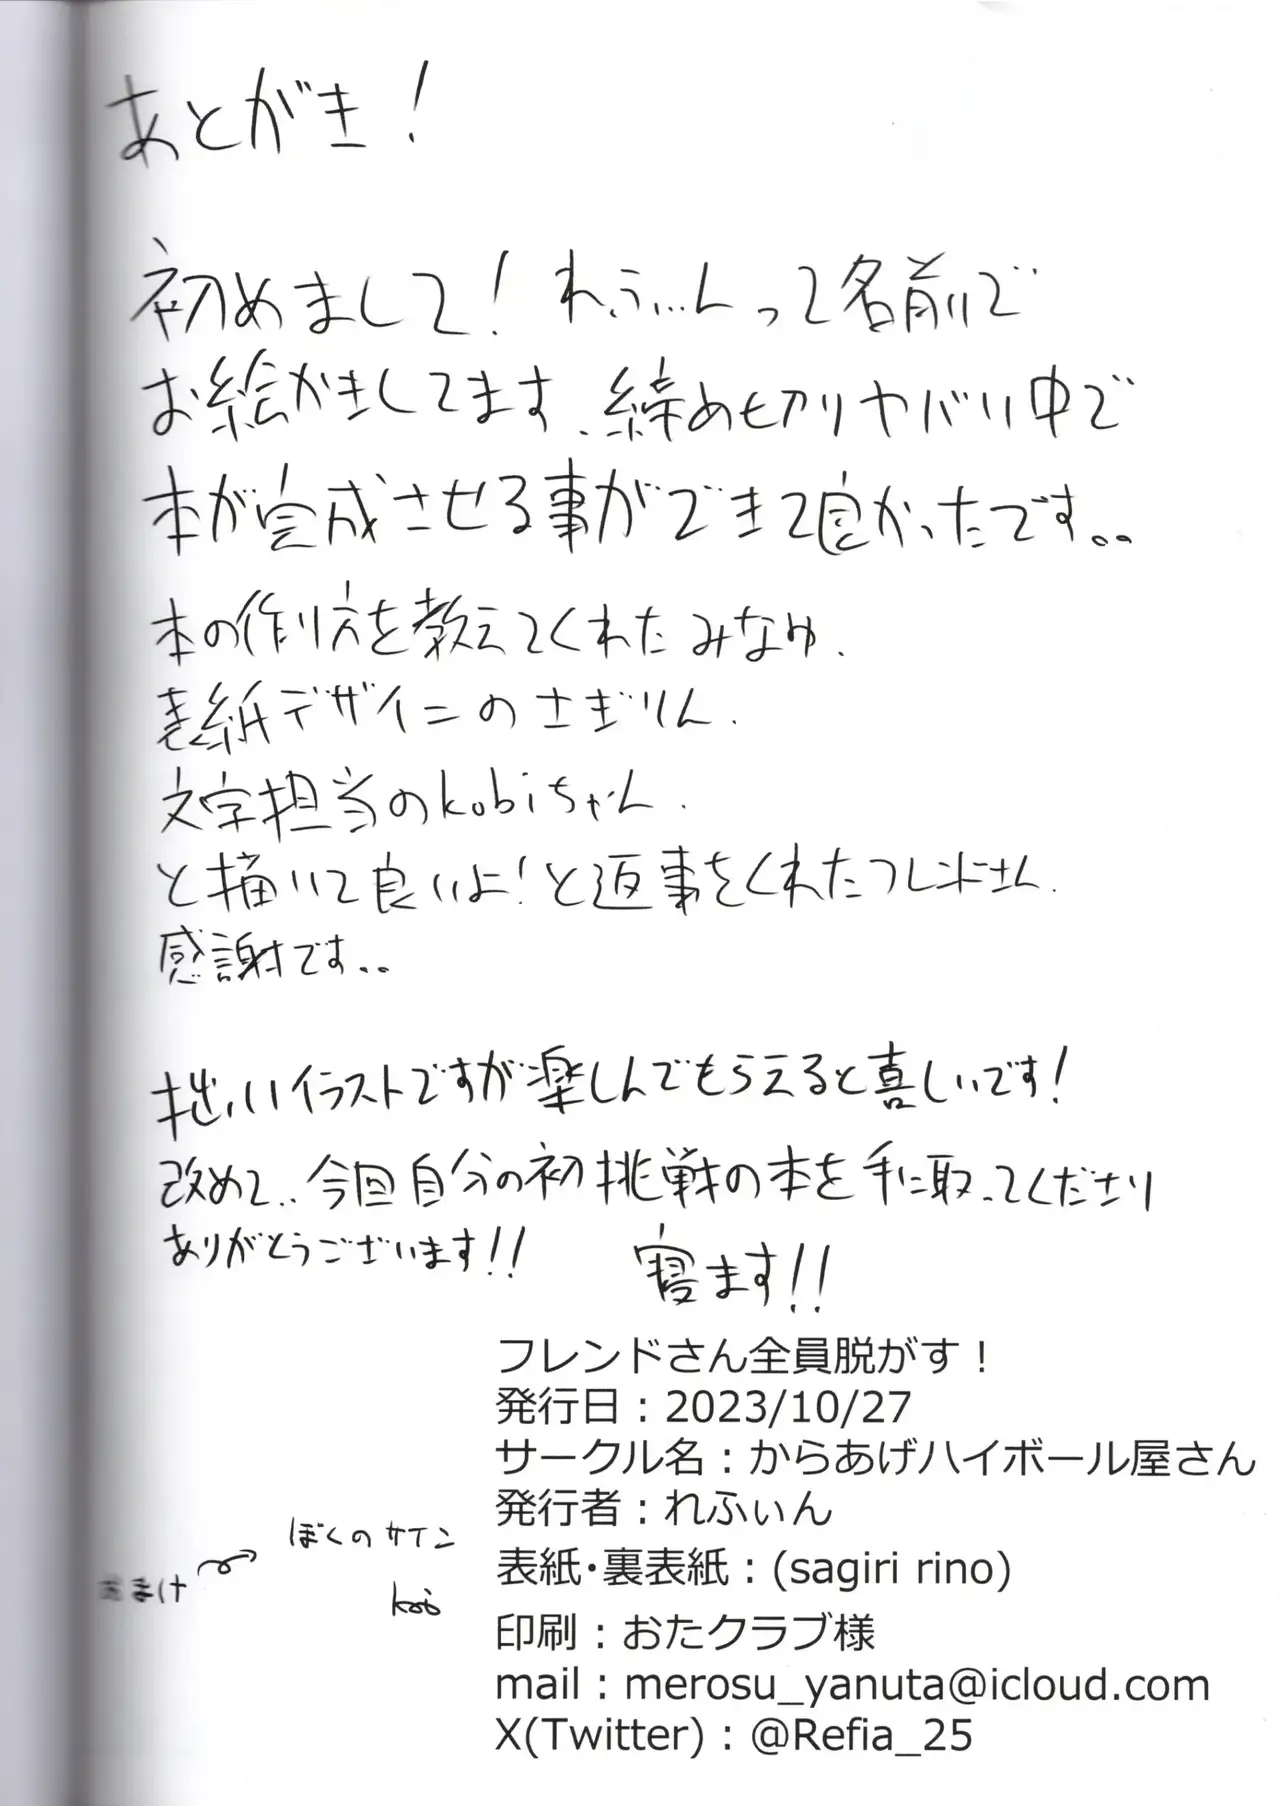 あとがき！
初めまして！れふぃんって名前で
お絵かきしてます、締め切りヤバい中で
本が完成させる事ができて良かったです。。
本の作り方を教えてくれたみなゆ、
表紙デザインのさぎりん、
文字担当のkobiちゃん、
と描いて良いよ！と返事をくれたフレンドさん、
感謝です。。
拙いイラストですが楽しんでもらえると喜しいです！
改めて、今回自分の初挑戦の本を手に取ってくださり
ありがとうございます！！
寝ます！！
フレンドさん全員脱がす！
発行日：2023/10/27
サークル名：からあげハイボール屋さん
発行者：れふぃん
表紙・裏表紙：(sagiri rino)
印刷：おたクラブ様
mail：merosu_yanuta@icloud.com
X(Twitter)：@Refia_25
おまけ
ぼくのサイン
kobi